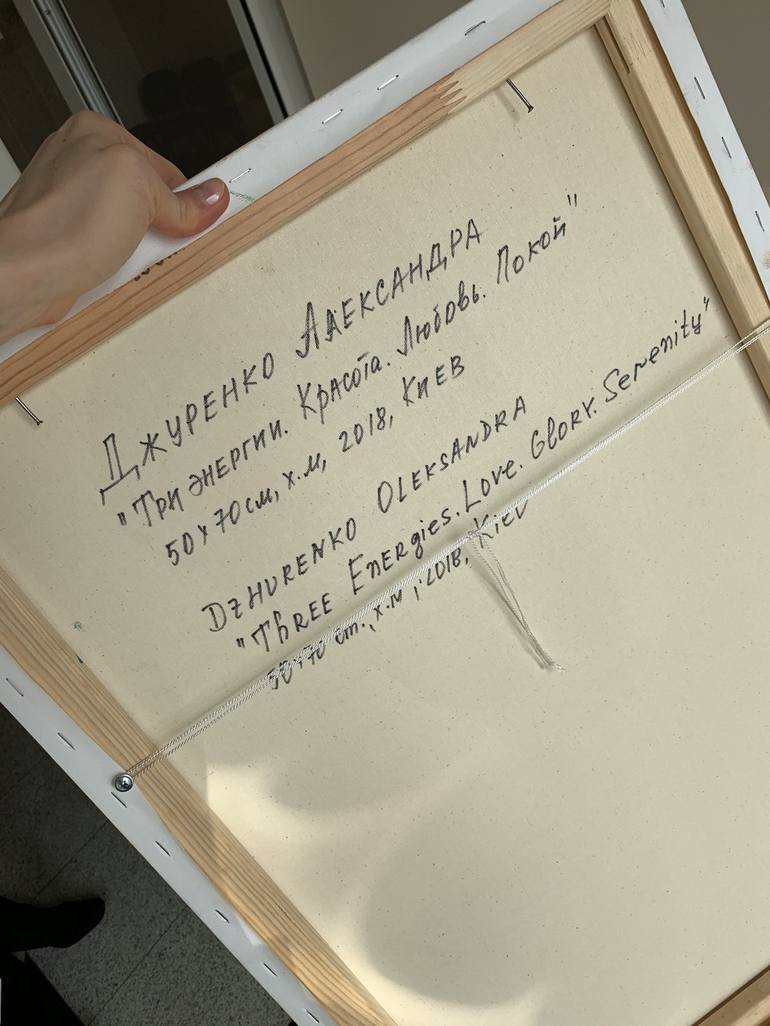 Джуренко Александра
"Три энергии. Красота. Любовь. Покой"
50х70см, х.м, 2018, Киев
DZHURENKO OLEKSANDRA
"Three Energies. Love. Glory. Serenity"
50x70 cm., х.м, 2018, Kiev